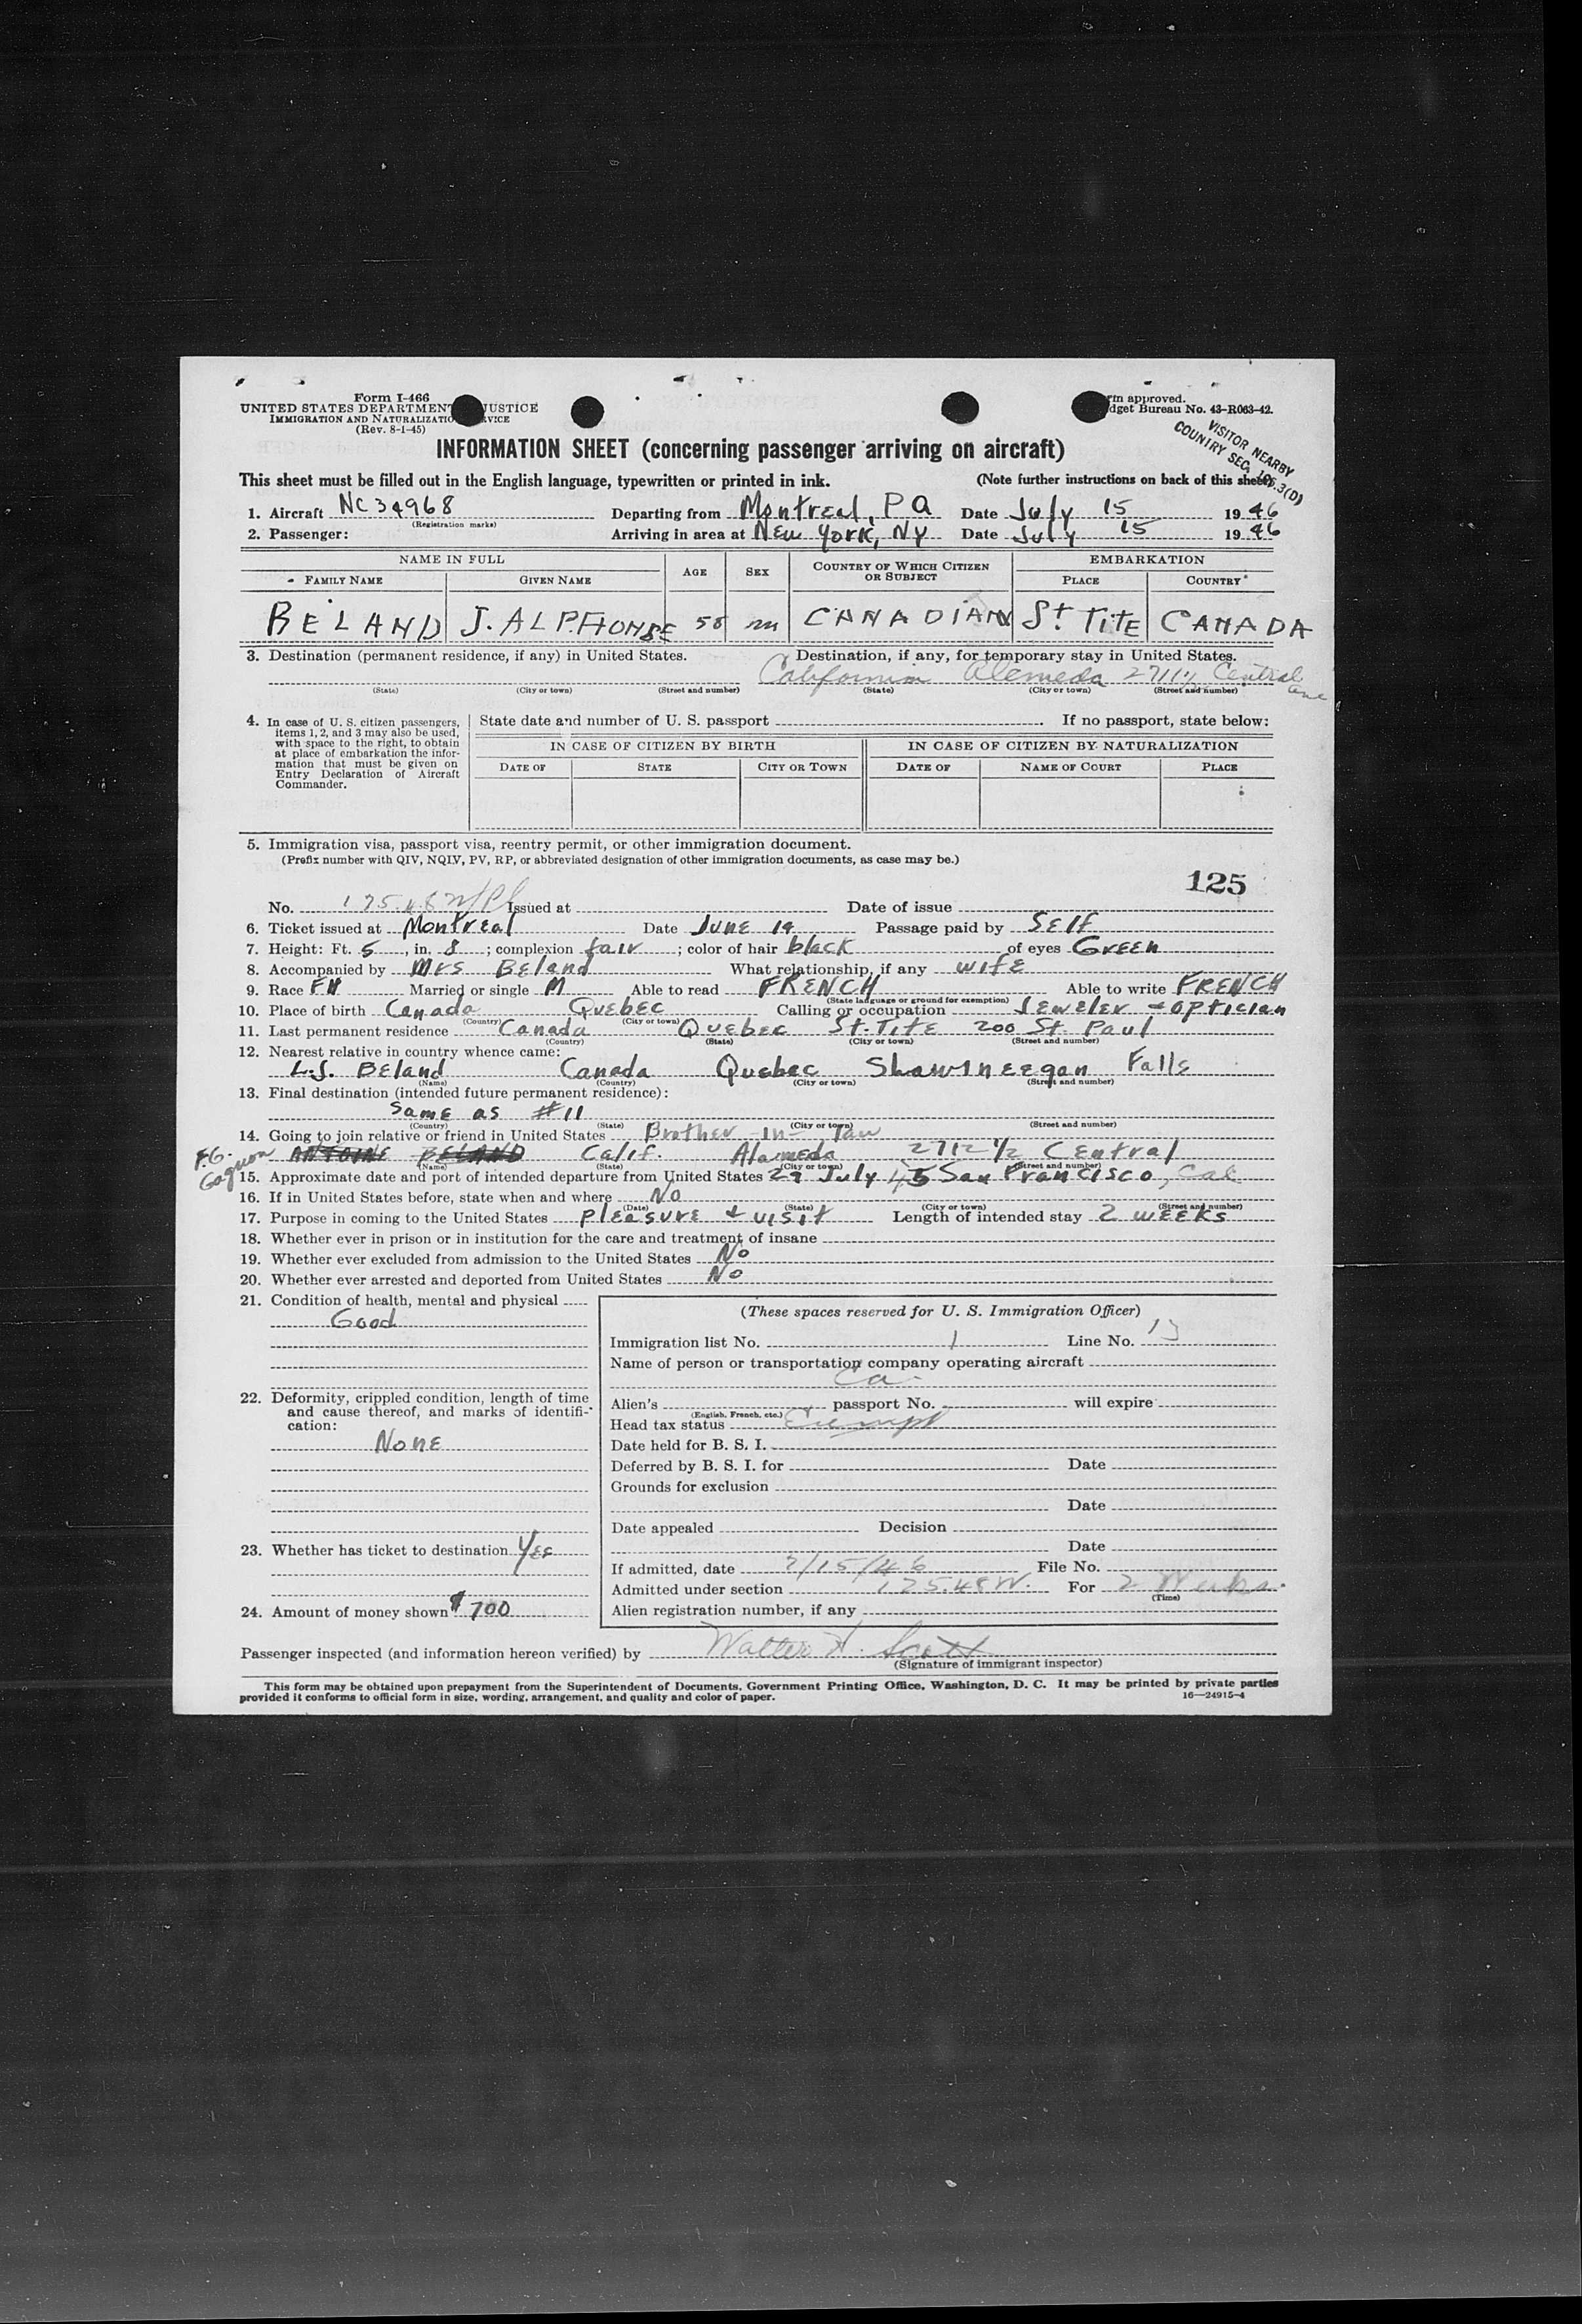 Form I-466
UNITED STATES DEPARTMENT JUSTICE
IMMIGRATION AND NATURALIZATIO RVICE
(Rev. 8-1-45)
rm approved.
dget Bureau No. 43-R063-42.
VISITOR NEARBY
COUNTRY SEC. .3(D)
INFORMATION SHEET (concerning passenger arriving on aircraft)
This sheet must be filled out in the English language, typewritten or printed in ink. (Note further instructions on back of this sheet)
1. Aircraft NC34968 Departing from Montreal, P Q Date July 15 1946
(Registration marks)
2. Passenger: Arriving in area at New York, NY Date July 15 1946
NAME IN FULL AGE SEX COUNTRY OF WHICH CITIZEN OR SUBJECT EMBARKATION
FAMILY NAME GIVEN NAME PLACE COUNTRY
BELAND J. ALPHONSE 58 m CANADIAN St TITE CANADA
3. Destination (permanent residence, if any) in United States. Destination, if any, for temporary stay in United States.
California Alameda Central ave
(State) (City or town) (Street and number) (State) (City or town) (Street and number)
4. In case of U. S. citizen passengers, items 1, 2, and 3 may also be used, with space to the right, to obtain at place of embarkation the information that must be given on Entry Declaration of Aircraft Commander.
State date and number of U. S. passport . If no passport, state below:
IN CASE OF CITIZEN BY BIRTH IN CASE OF CITIZEN BY NATURALIZATION
DATE OF STATE CITY OR TOWN DATE OF NAME OF COURT PLACE
5. Immigration visa, passport visa, reentry permit, or other immigration document.
(Prefix number with QIV, NQIV, PV, RP, or abbreviated designation of other immigration documents, as case may be.)
125
No. Issued at Date of issue
6. Ticket issued at Montreal Date June 19 Passage paid by Self
7. Height: Ft. 5, in. 8; complexion fair; color of hair black of eyes Green
8. Accompanied by Mrs Beland What relationship, if any wife
9. Race FH Married or single M Able to read FRENCH Able to write FRENCH
(State language or ground for exemption)
10. Place of birth Canada Quebec Calling or occupation Jeweler + optician
(Country) (City or town)
11. Last permanent residence Canada Quebec St. Tite 200 St. Paul
(Country) (State) (City or town) (Street and number)
12. Nearest relative in country whence came:
L.J. Beland Canada Quebec Shawineegan Falls
(Name) (Country) (City or town) (Street and number)
13. Final destination (intended future permanent residence):
Same as #11
(Country) (State) (City or town) (Street and number)
14. Going to join relative or friend in United States Brother-in-law
F.G. Gagnon ANTOINE BELAND Calif. Alameda 2712 1/2 Central
(Name) (State) (City or town) (Street and number)
15. Approximate date and port of intended departure from United States 29 July 45 San Francisco, Cal
16. If in United States before, state when and where No
(Date) (State) (City or town) (Street and number)
17. Purpose in coming to the United States pleasure + visit Length of intended stay 2 weeks
18. Whether ever in prison or in institution for the care and treatment of insane
19. Whether ever excluded from admission to the United States No
20. Whether ever arrested and deported from United States No
21. Condition of health, mental and physical
Good
22. Deformity, crippled condition, length of time and cause thereof, and marks of identification:
None
23. Whether has ticket to destination Yes
24. Amount of money shown $700
(These spaces reserved for U. S. Immigration Officer)
Immigration list No. 1 Line No. 13
Name of person or transportation company operating aircraft
Ca.
Alien's passport No. will expire
(English, French, etc.)
Head tax status Exempt
Date held for B. S. I.
Deferred by B. S. I. for Date
Grounds for exclusion
Date
Date appealed Decision
Date
If admitted, date 7/15/46 File No.
Admitted under section 125.48W. For 2 Weeks.
(Time)
Alien registration number, if any
Passenger inspected (and information hereon verified) by Walter H. Scott
(Signature of immigrant inspector)
This form may be obtained upon prepayment from the Superintendent of Documents, Government Printing Office, Washington, D. C. It may be printed by private parties
provided it conforms to official form in size, wording, arrangement, and quality and color of paper. 16—24915-4